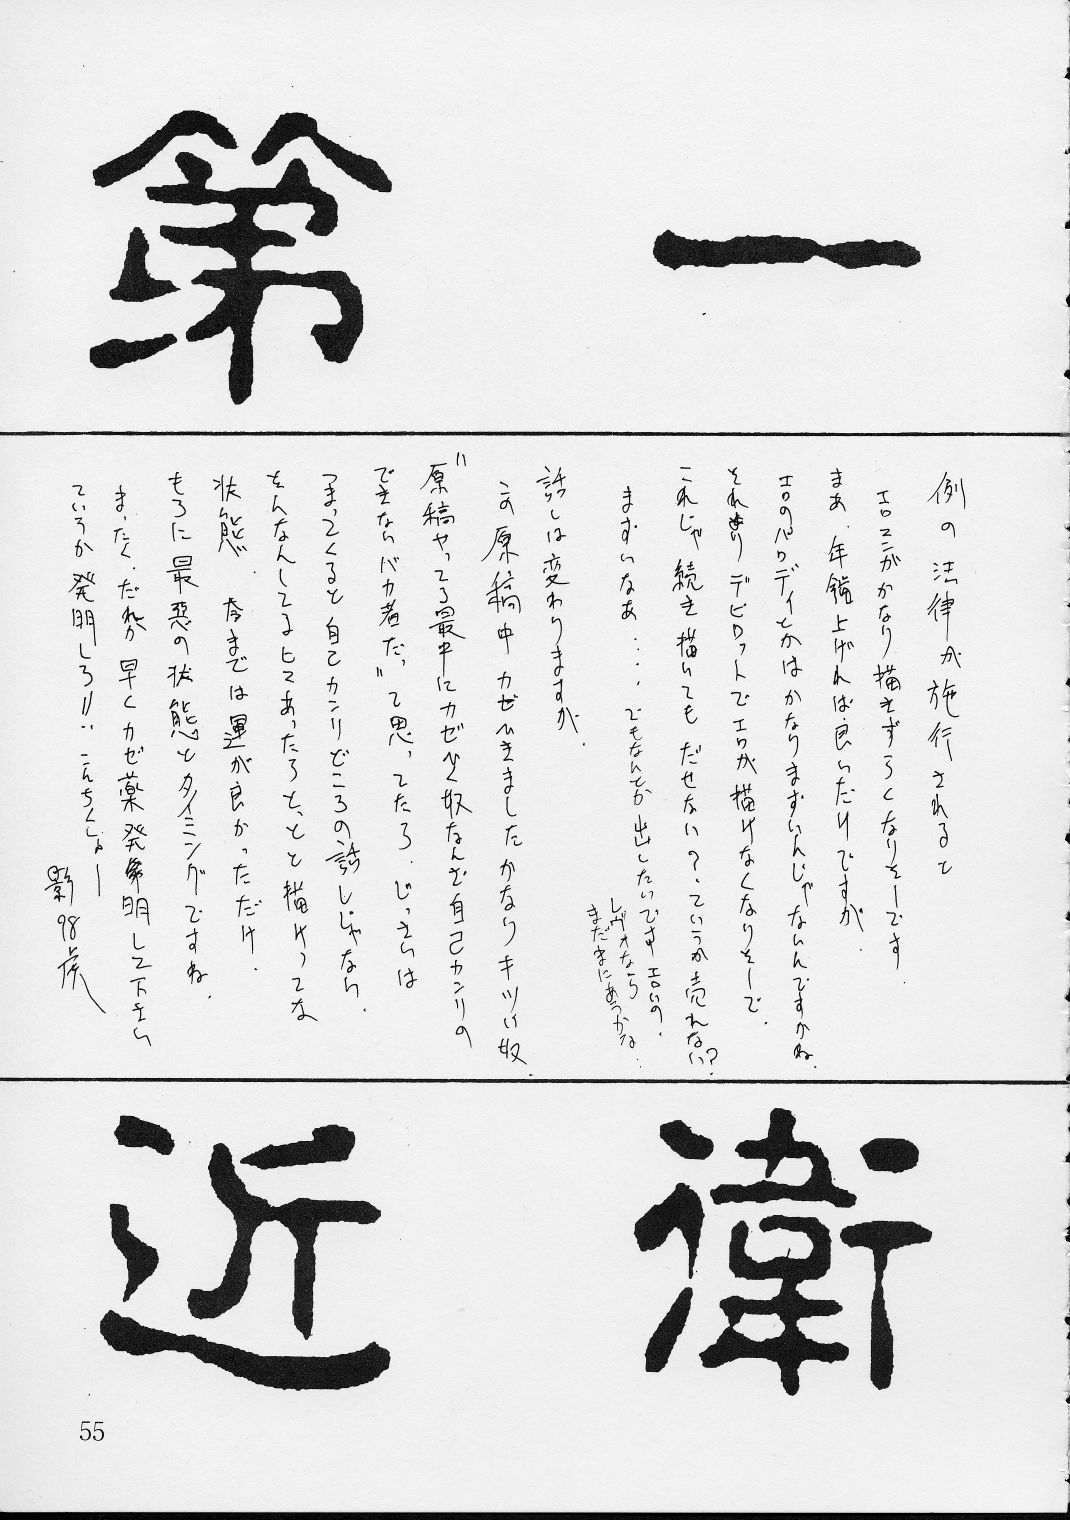 第一
例の法律が施行されると
エロマンがかなり描きずらくなりそーです
まあ、年齢上げれば良いだけですが、
エロのパロディとかはかなりまずいんじゃないんですかね、
それよりデビロットでエロが描けなくなりそーで、
これじゃ続き描いても だせない?、ていうか売れない?、
まずいなあ・・・、でもなんとか出したいですエロいの、
レヴォなら
まだまにあうかな・・
話しは変わりますが、
この原稿中カゼひきましたかなりキツい奴、
"原稿やってる最中にカゼひく奴なんざ自己カンリの
できないバカ者だっ"て思ってたら、じっさいは
つまってくると自己カンリどころの話しじゃない、
そんなんしてるヒマあったらとっとと描けってな
状態、今までは運が良かっただけ、
もろに最悪の状態とタイミングですね、
まったく、だれか早くカゼ薬発明して下さい
ていうか発明しろ!!、こんちくしょー
影98虎
近衛
55